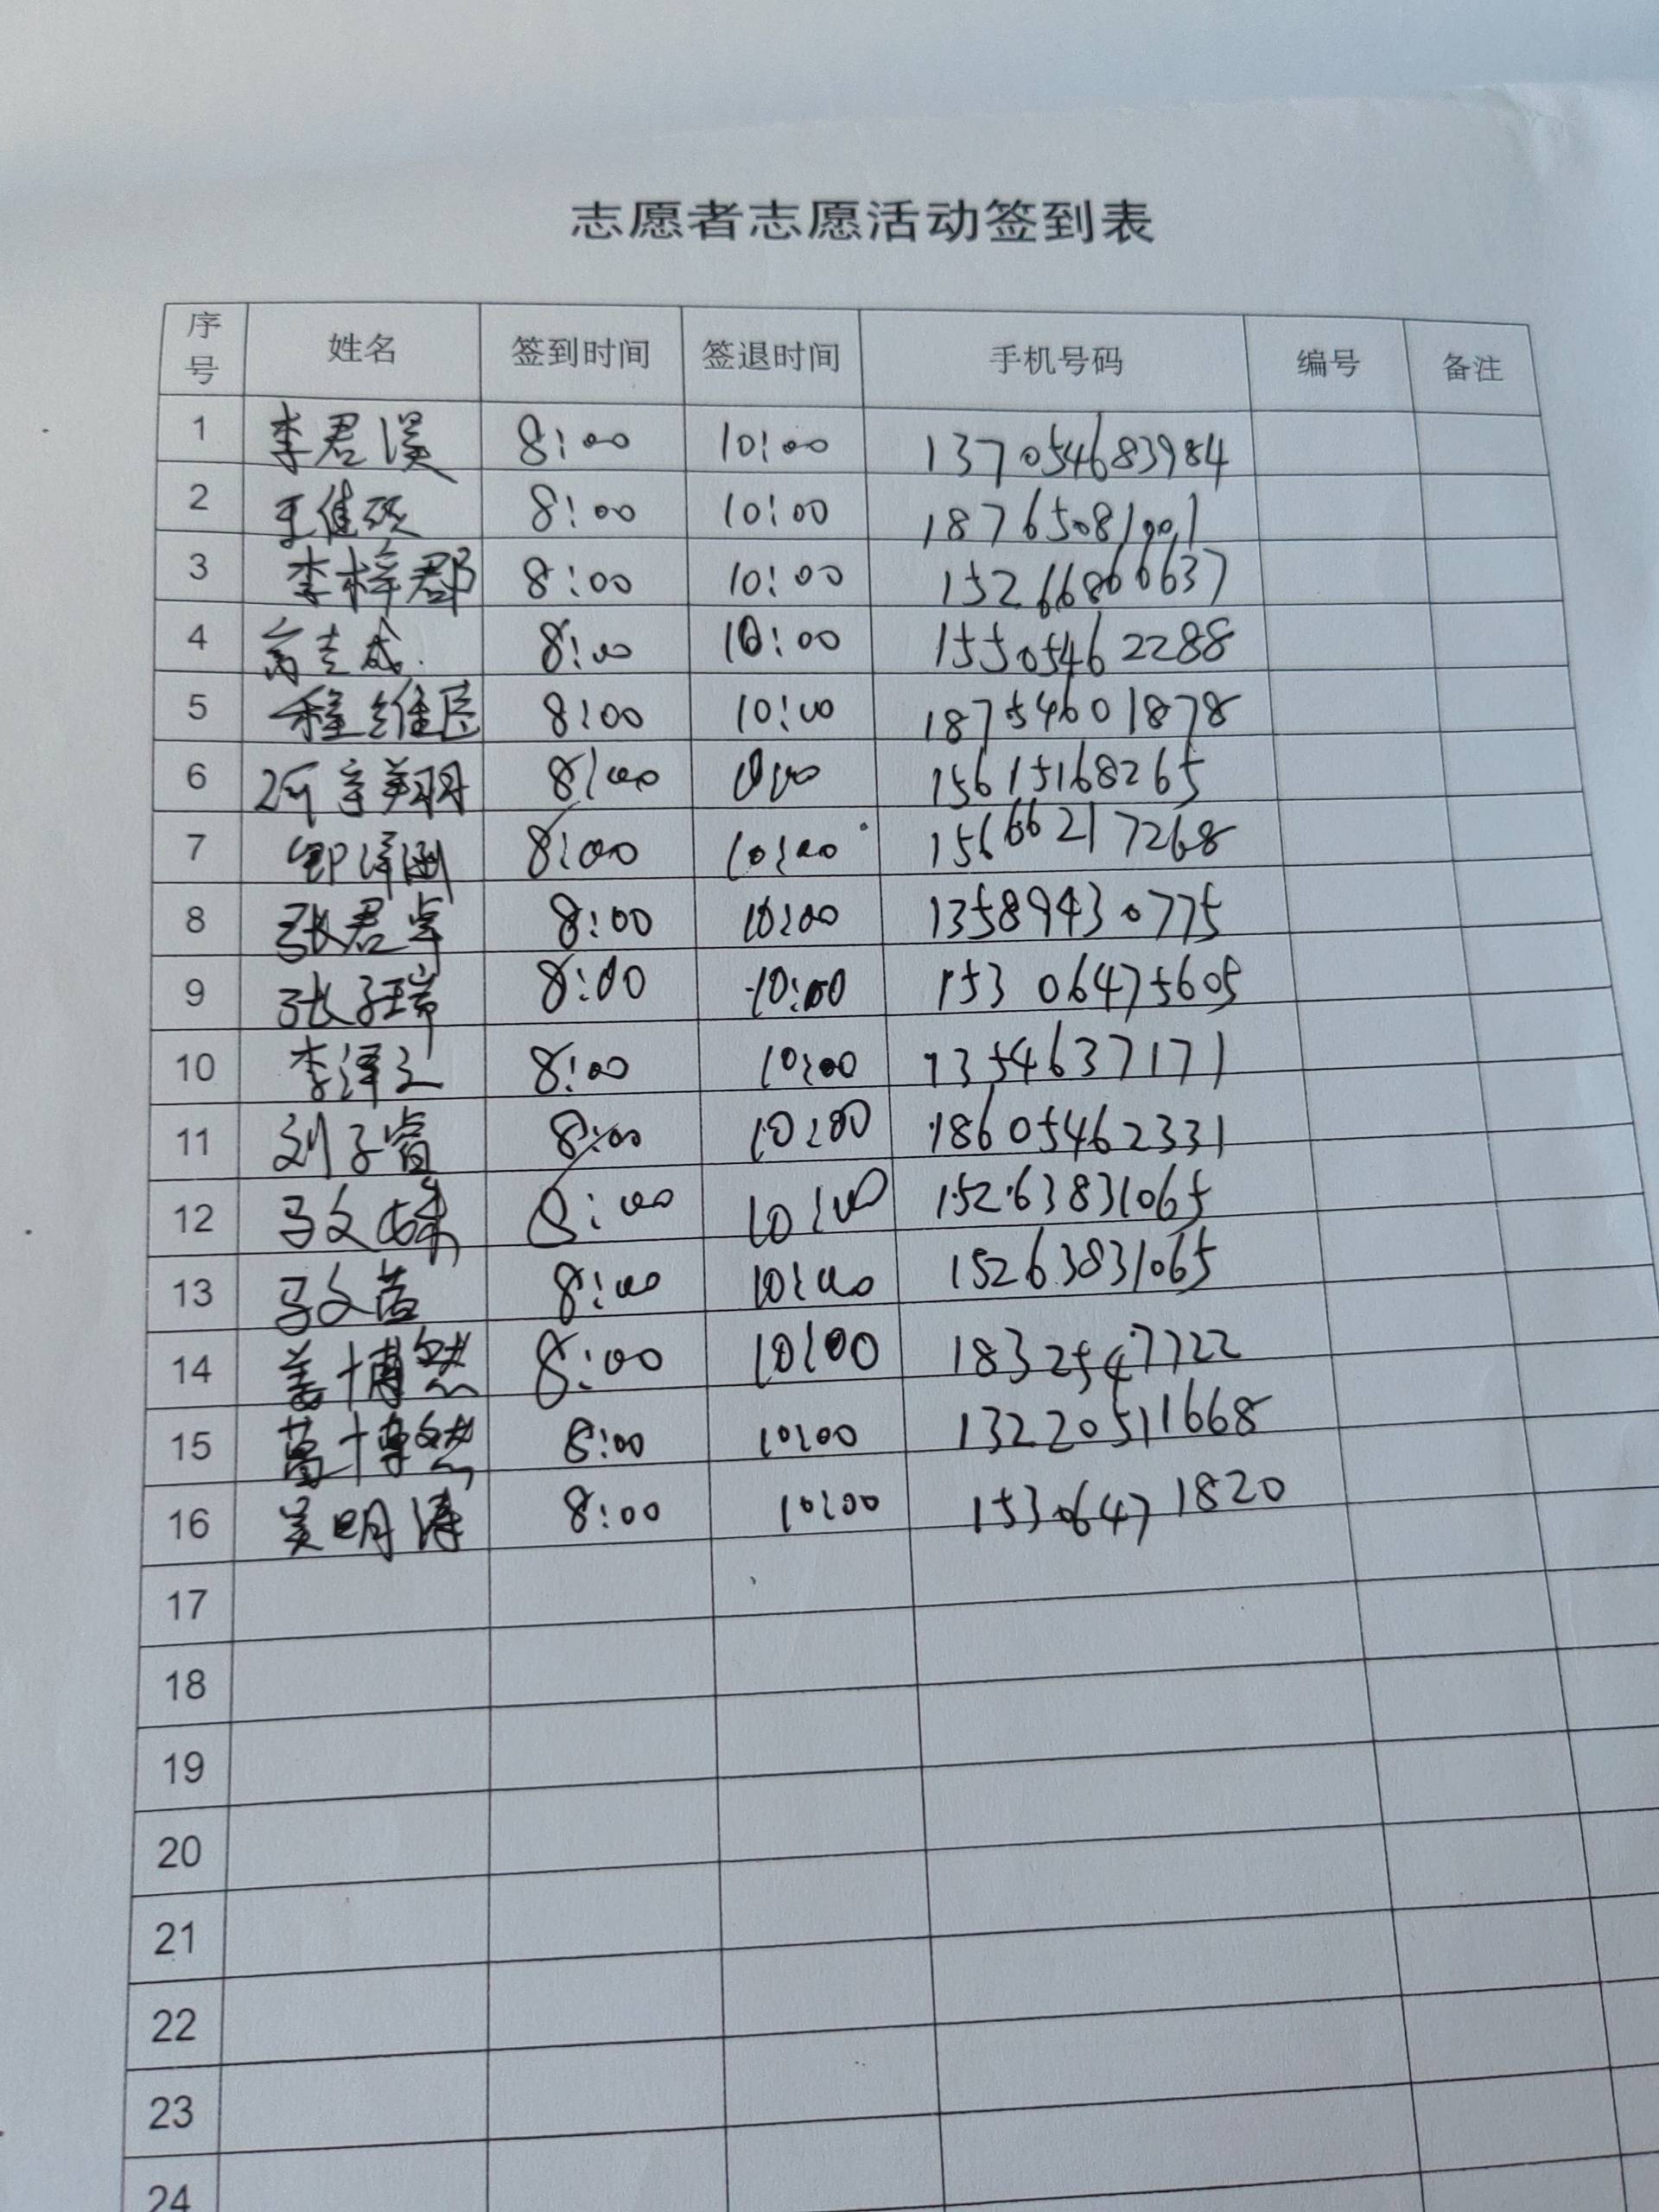 志愿者志愿活动签到表
序号 姓名 签到时间 签退时间 手机号码 编号 备注
1 李君溪 8:00 10:00 137054683984
2 王健硕 8:00 10:00 18765081001
3 李梓郡 8:00 10:00 15266800637
4 8:00 10:00 15505462288
5 程维臣 8:00 10:00 18754601878
6 8:00 10:00 15615168265
7 8:00 10:00 15666217268
8 张君卓 8:00 10:00 13589430775
9 张子瑞 8:00 10:00 15306475605
10 李泽文 8:00 10:00 1354637171
11 刘子睿 8:00 10:00 18605462331
12 马文 8:00 10:00 15263831065
13 马文茜 8:00 10:00 15263831065
14 姜博然 8:00 10:00 1832547722
15 葛博然 8:00 10:00 13220511668
16 吴明涛 8:00 10:00 15306471820
17
18
19
20
21
22
23
24